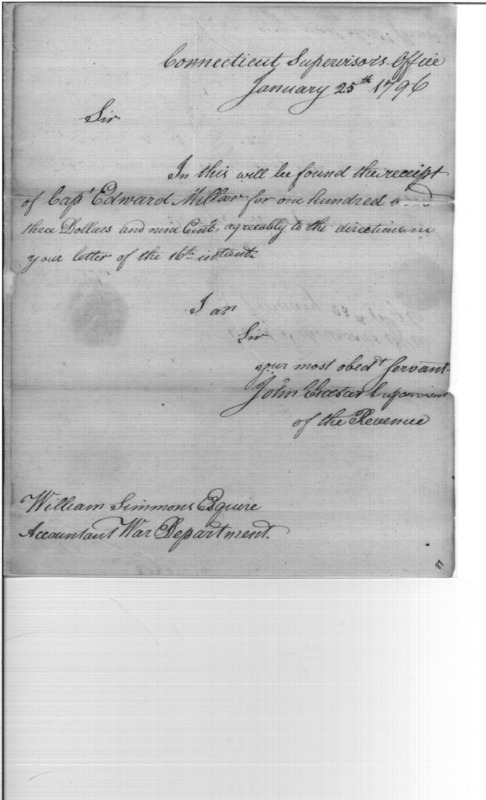 Connecticut Supervisors Office
January 25th 1796
Sir
In this will be found the receipt
of Capt Edward Miller for one hundred and
three Dollars and nine Cents, agreeably to the directions in
your letter of the 16th instant.
I am
Sir
your most obedt Servant
John Chester Supervisor
of the Revenue
William Simmons Esquire
Accountant War Department.